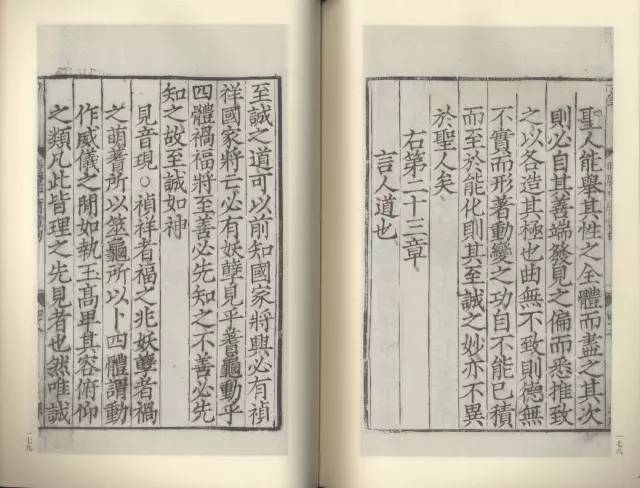 聖人能舉其性之全體而盡之其次
則必自其善端發見之偏而悉推致
之以各造其極也曲無不致則德無
不實而形著動變之功自不能已積
而至於能化則其至誠之妙亦不異
於聖人矣
右第二十三章
言人道也
一七八
至誠之道可以前知國家將興必有禎
祥國家將亡必有妖孽見乎蓍龜動乎
四體禍福將至善必先知之不善必先
知之故至誠如神
見音現○禎祥者福之兆妖孽者禍
之萌蓍所以筮龜所以卜四體謂動
作威儀之閒如執玉高卑其容俯仰
之類凡此皆理之先見者也然唯誠
一七九